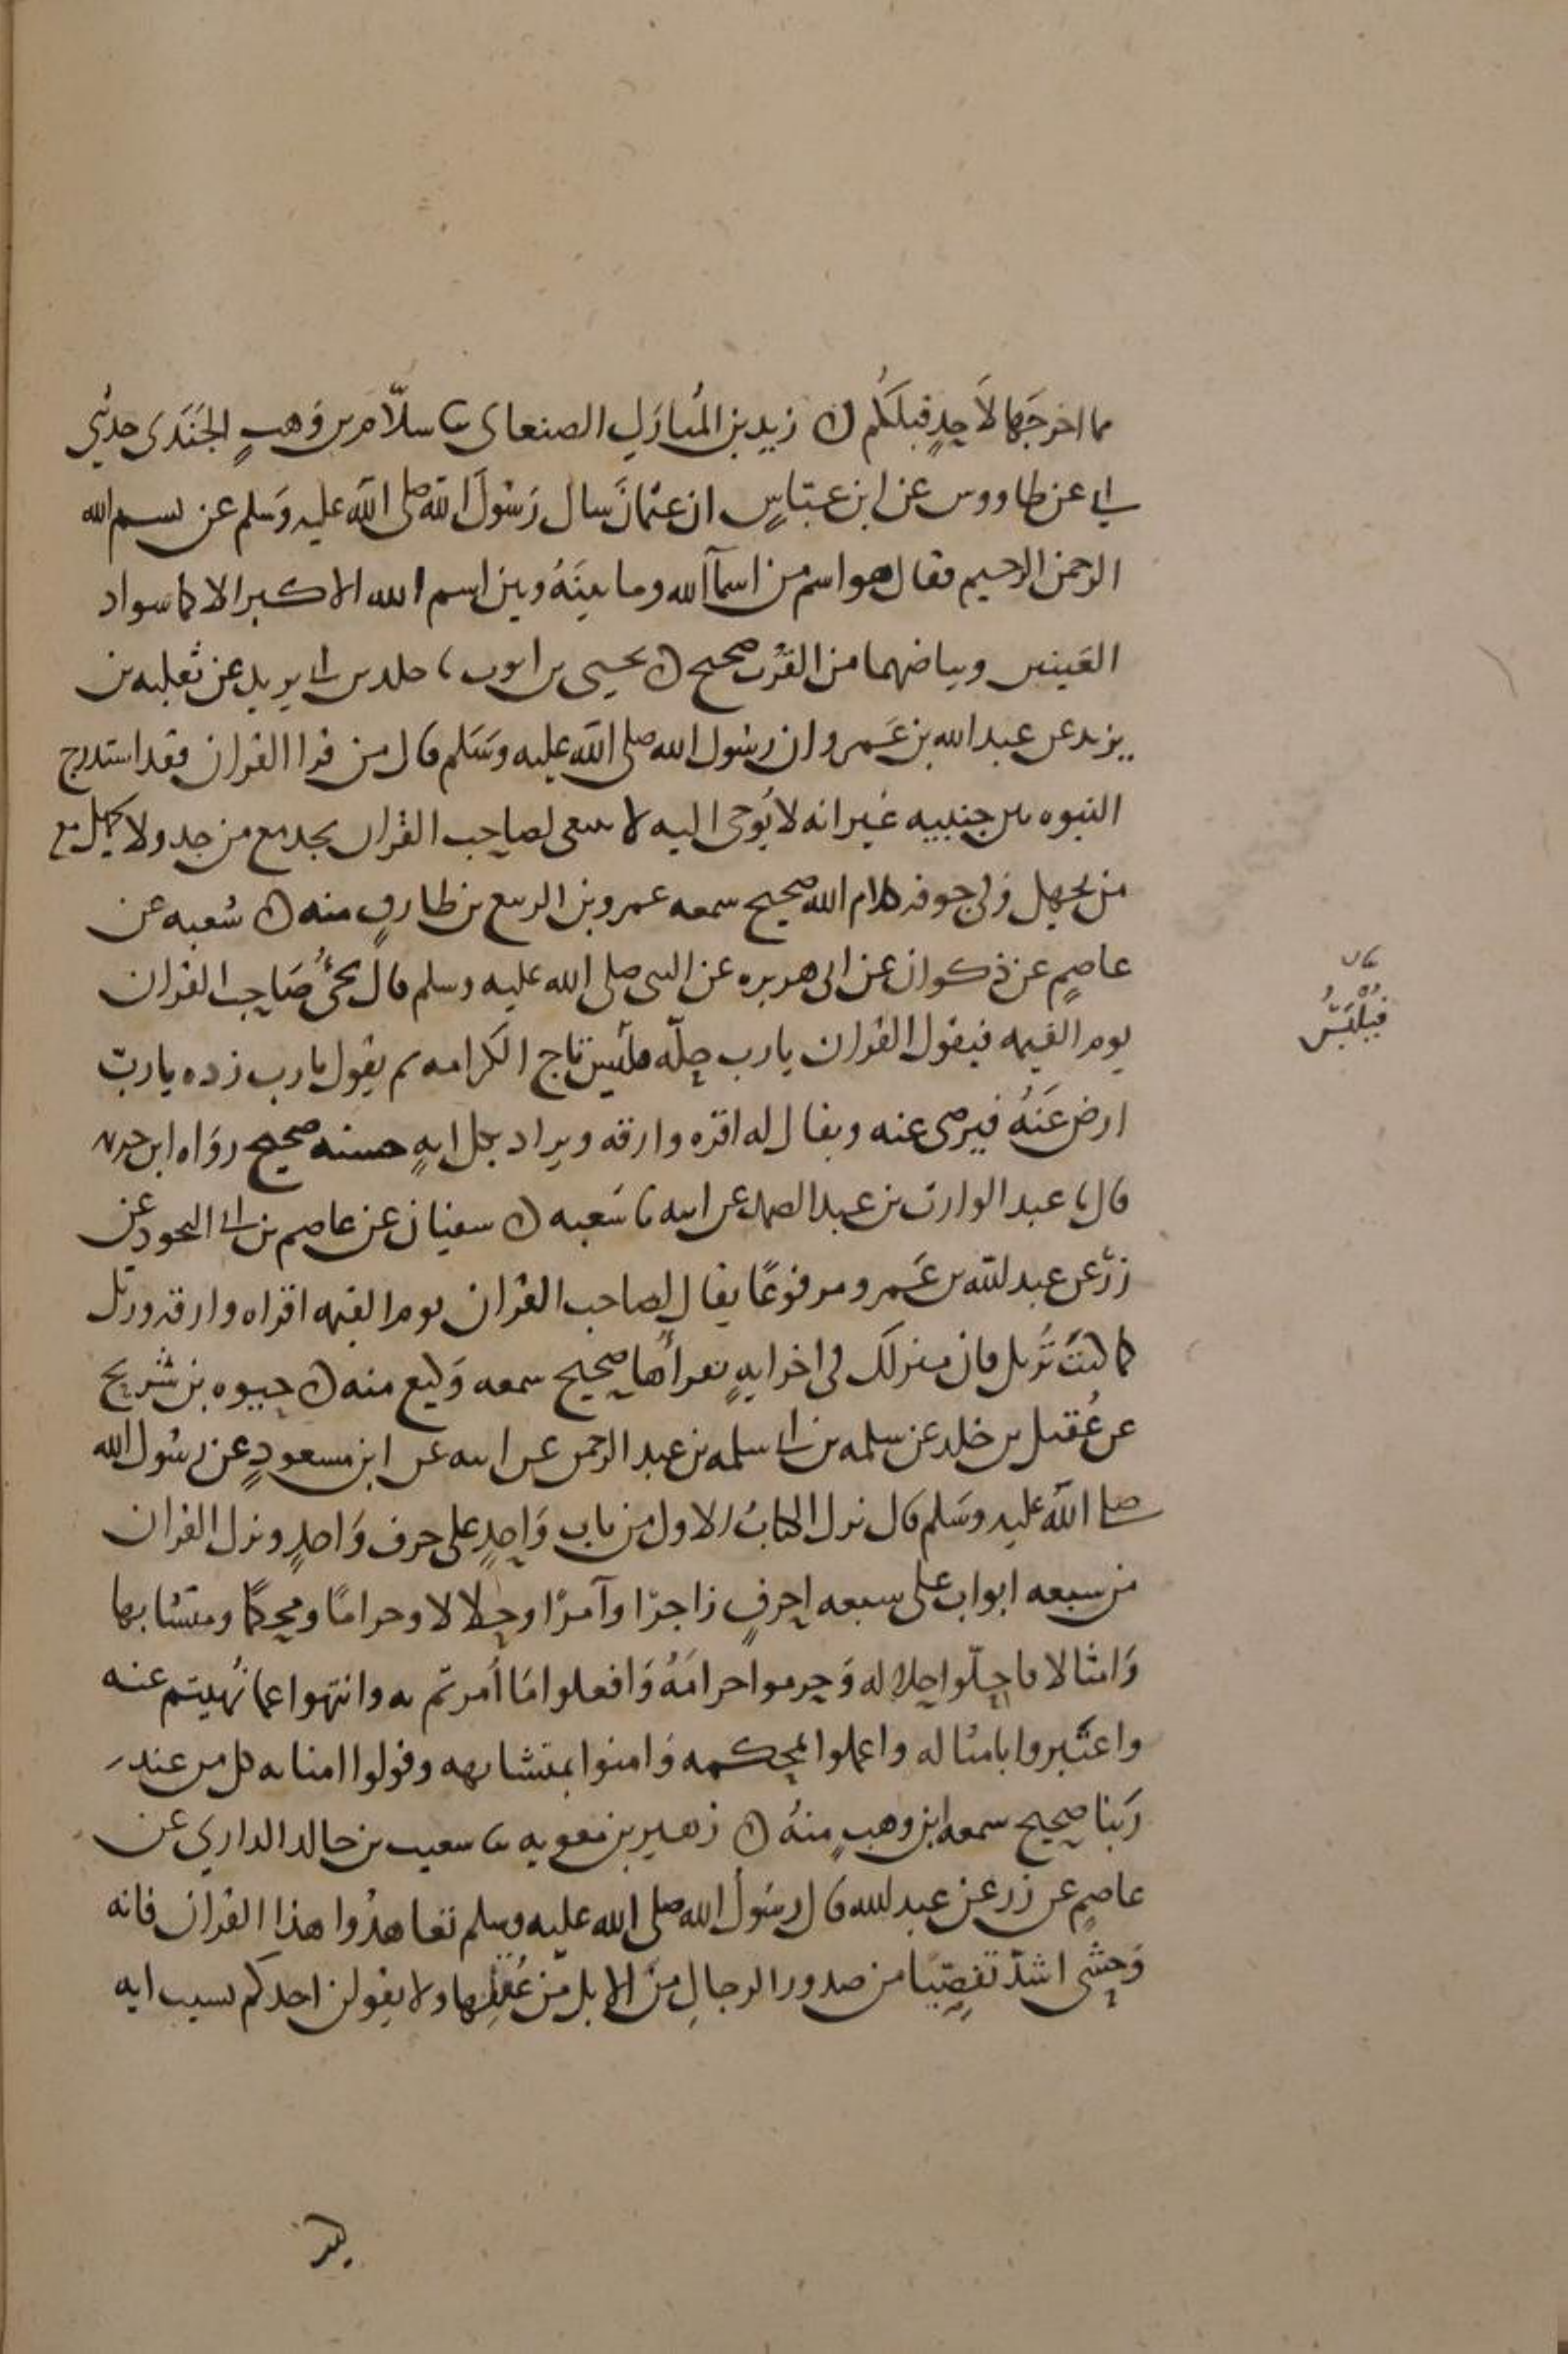 مما اخرجها لاحد قبلكم ن زيد بن المبارك الصنعاى ثنا سلام بن وهب الجندى حدثني
ابي عن طاووس عن ابن عباس ان عثمان سال رسول الله صلى الله عليه وسلم عن بسم الله
الرحمن الرحيم فقال هو اسم من اسماء الله وما بينه وبين اسم الله الاكبر الا كما سواد
العينين وبياضهما من القرب صحيح ن يحيى بن ايوب نا خلد بن ابي يزيد عن ثعلبه بن
يزيد عن عبد الله بن عمرو ان رسول الله صلى الله عليه وسلم قال من قرا القران فقد استدرج
النبوه بين جنبيه غير انه لا يوحى اليه لا ينبغى لصاحب القران يجد مع من جد ولا يجهل مع
من يجهل وفي جوفه كلام الله صحيح سمعه عمرو بن الربيع بن طارق منه ن شعبه عن
عاصم عن ذكوان عن ابى هريره عن النبى صلى الله عليه وسلم قال يجئ صاحب القران
يوم القيمه فيقول القران يارب حله فلبس تاج الكرامه ثم يقول يارب زده يارب
ارض عنه فيرضى عنه ويقال له اقره وارقه ويزاد بكل ايه حسنه صحيح رواه ابن خزيمه
قال نا عبد الوارث بن عبد الصمد عن ابيه نا شعبه ن سفيان عن عاصم بن ابي النجود عن
زر عن عبد الله بن عمرو مرفوعا يقال لصاحب القران يوم القيمه اقراه وارقه ورتل
كما كنت ترتل فان منزلك فى اخر ايه تقرأها صحيح سمعه وكيع منه ن حيوه بن شريح
عن عقيل بن خلد عن سلمه بن ابي سلمه بن عبد الرحمن عن ابيه عن ابن مسعود عن رسول الله
صلى الله عليه وسلم قال نزل الكتاب الاول من باب واحد على حرف واحد ونزل القران
من سبعه ابواب على سبعه احرف زاجرا وآمرا وحلالا وحراما ومحكما ومتشابها
وامثالا فاحلوا حلاله وحرموا حرامه وافعلوا ما أمرتم به وانتهوا عما نهيتم عنه
واعتبروا بامثاله واعملوا بمحكمه وامنوا بمتشابهه وقولوا امنا به كل من عند
ربنا صحيح سمعه ابن وهب منه ن زهير بن معويه ثنا سعيب بن خالد الداري عن
عاصم عن زر عن عبد الله قال رسول الله صلى الله عليه وسلم تعاهدوا هذا القران فانه
وحشى اشد تفصيا من صدور الرجال من الابل من عقلها ولا يقولن احدكم نسيت ايه
فيلبس